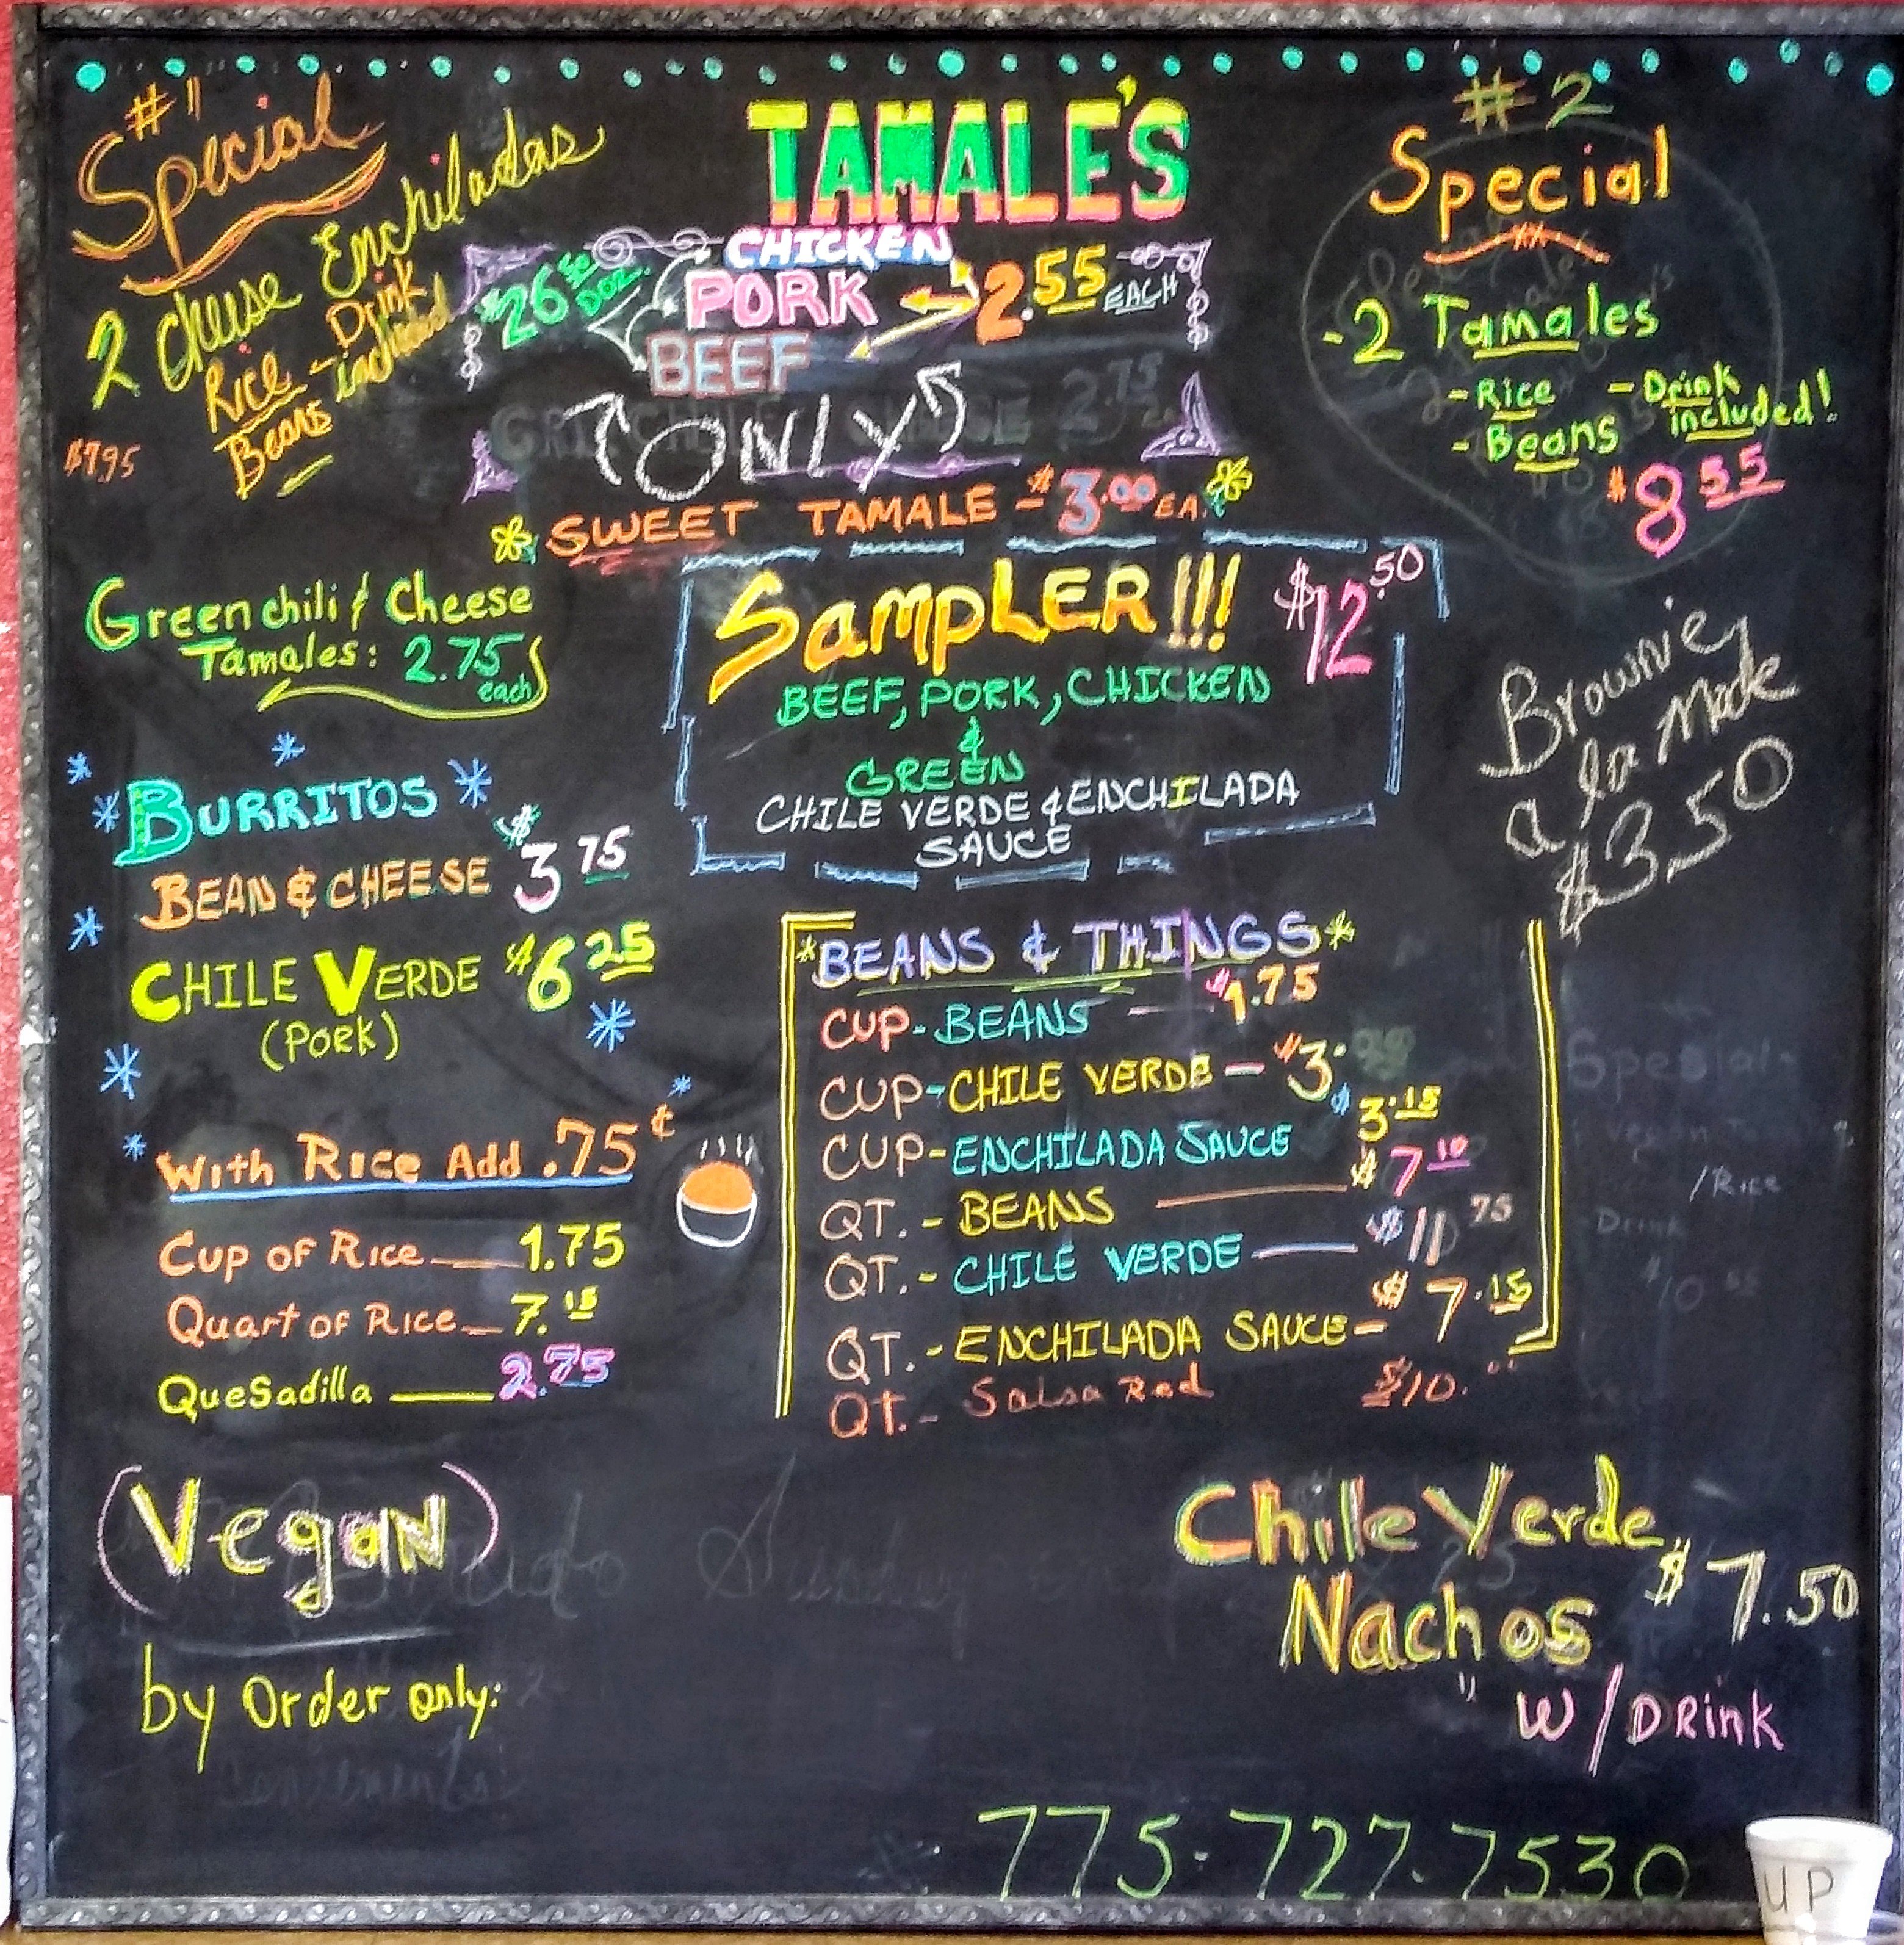 #1
Special
2 Cheese Enchiladas
Rice - Drink
Beans included
$7.95
TAMALE'S
CHICKEN
$26.50 DOZ.
PORK
2.55 EACH
BEEF
ONLY
SWEET TAMALE - $3.00 EA.
#2
Special
-2 Tamales
-Rice -Drink
-Beans included!
$8.55
Green chili & Cheese
Tamales: 2.75
each
SAMPLER!!! $12.50
BEEF, PORK, CHICKEN
&
GREEN
CHILE VERDE & ENCHILADA
SAUCE
Brownie
a la Mode
$3.50
BURRITOS
BEAN & CHEESE $3.75
CHILE VERDE $6.25
(PORK)
With Rice Add .75¢
Cup of Rice 1.75
Quart of Rice 7.15
Quesadilla 2.75
*BEANS & THINGS*
CUP-BEANS $1.75
CUP-CHILE VERDE - $3.
CUP-ENCHILADA SAUCE $3.15
QT.-BEANS $7.10
QT.-CHILE VERDE $10.75
QT.-ENCHILADA SAUCE- $7.15
QT.- Salsa Red $10.
(Vegan)
by Order only:
Chile Verde
Nachos $7.50
W/Drink
775-727-7530
UP